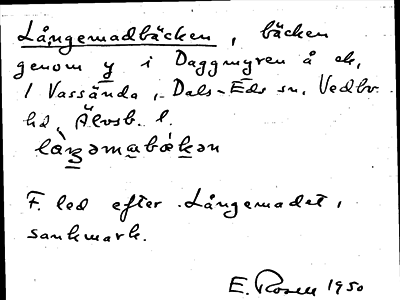 Långemadbäcken, bäcken
genom y i Daggmyren å ek,
1 Vassända, Dals-Eds sn, Vedbo
hd, Älvsb. l.
F. led efter Långemadet,
sankmark.
E. Rosell 1950